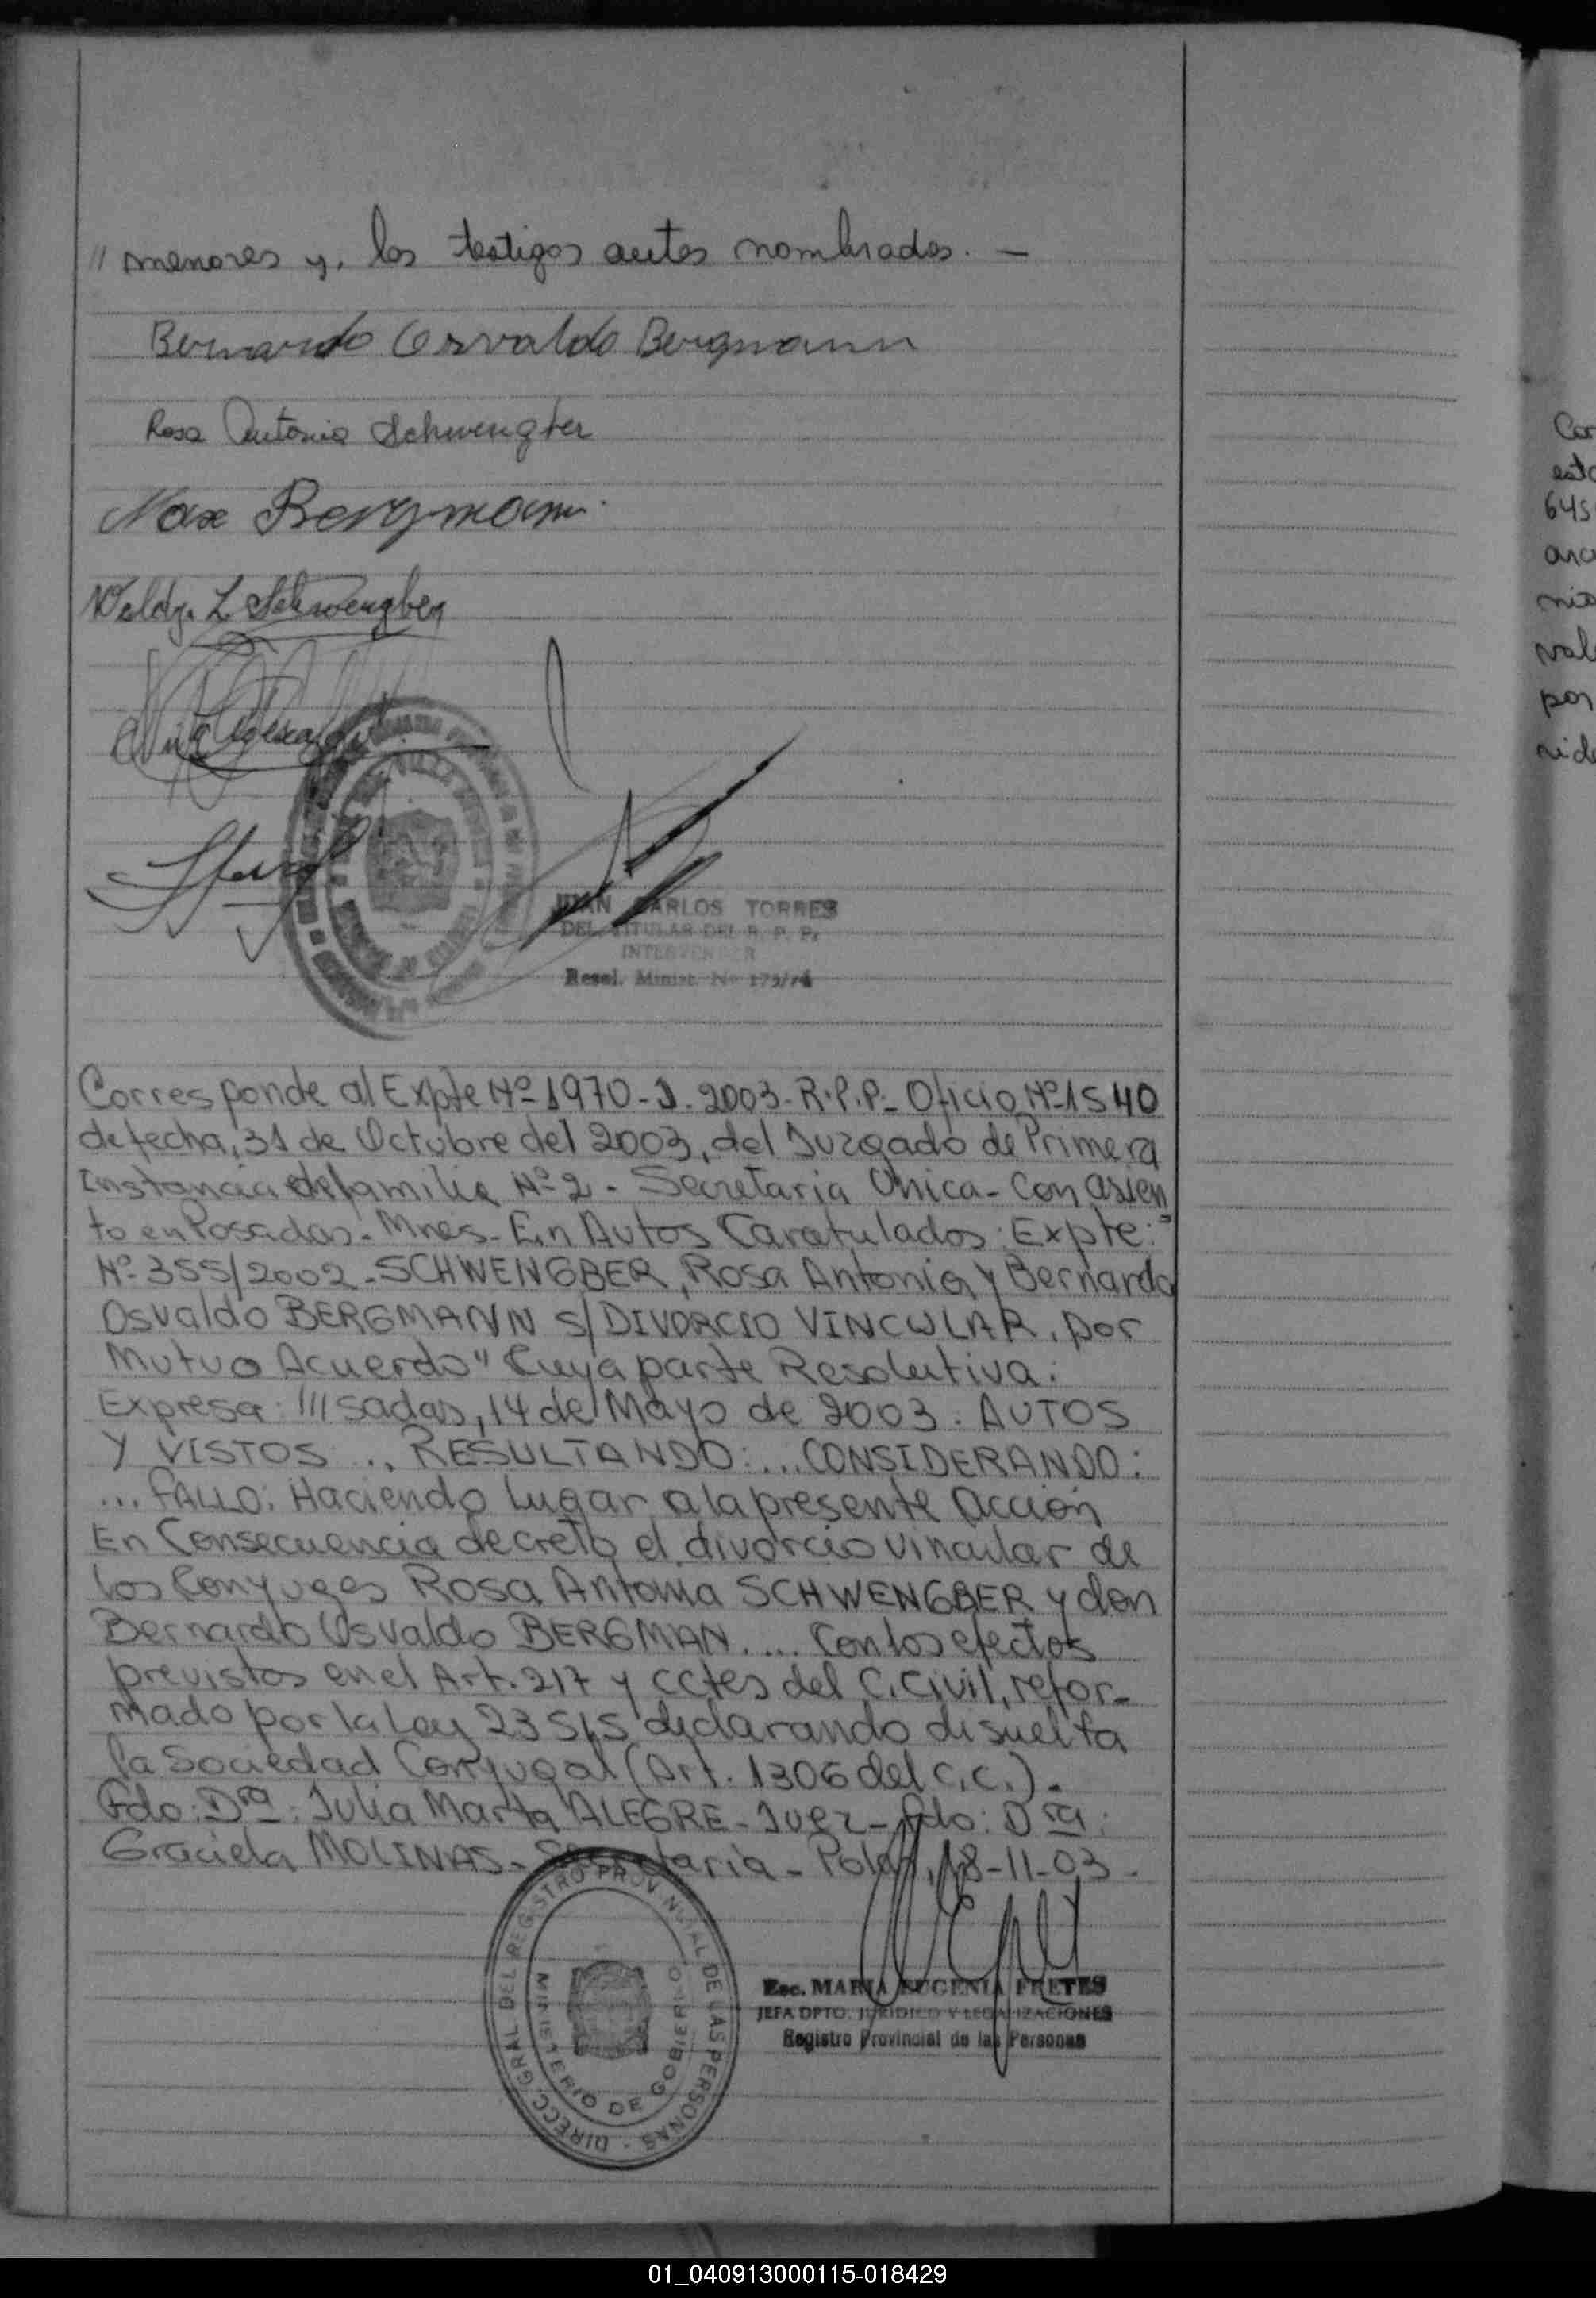 // menores y, los testigos antes nombrados. —
Bernardo Osvaldo Bergmann
Rosa Antonia Schwengber
Max Bergmann
L Schwengber
JUAN CARLOS TORRES
DEL. TITULAR DEL R. P. P.
INTERVENTOR
Resol. Minist. No 175/74
Corresponde al Expte Nº 1970-J-2003-R.P.P.- Oficio Nº 1540
de fecha, 31 de Octubre del 2003, del Juzgado de Primera
Instancia de familia Nº 2 - Secretaria Unica - Con asien
to en Posadas - Mnes - En Autos Caratulados: Expte: "
Nº 355/2002 - SCHWENGBER, Rosa Antonia y Bernardo
Osvaldo BERGMANN S/ DIVORCIO VINCULAR, por
Mutuo Acuerdo" Cuya parte Resolutiva:
Expresa: ///sadas, 14 de Mayo de 2003. AUTOS
Y VISTOS ... RESULTANDO: ... CONSIDERANDO:
... FALLO: Haciendo lugar a la presente acción
En Consecuencia decreto el divorcio vincular de
los Conyuges Rosa Antonia SCHWENGBER y don
Bernardo Osvaldo BERGMAN.... Con los efectos
previstos en el Art. 217 y cctes del C. Civil, refor-
mado por la Ley 23515 declarando disuelta
la Sociedad Conyugal (Art. 1306 del C.C.).
Fdo: Dra: Julia Marta ALEGRE - Juez - fdo: Dra:
Graciela MOLINAS - Secretaria - Pdas, 18-11-03 -
DIRECC. GRAL DEL REGISTRO PROVINCIAL DE LAS PERSONAS -
MINISTERIO DE GOBIERNO
Esc. MARIA EUGENIA FRETES
JEFA DPTO. JURIDICO Y LEGALIZACIONES
Registro Provincial de las Personas
645
por
01_040913000115-018429